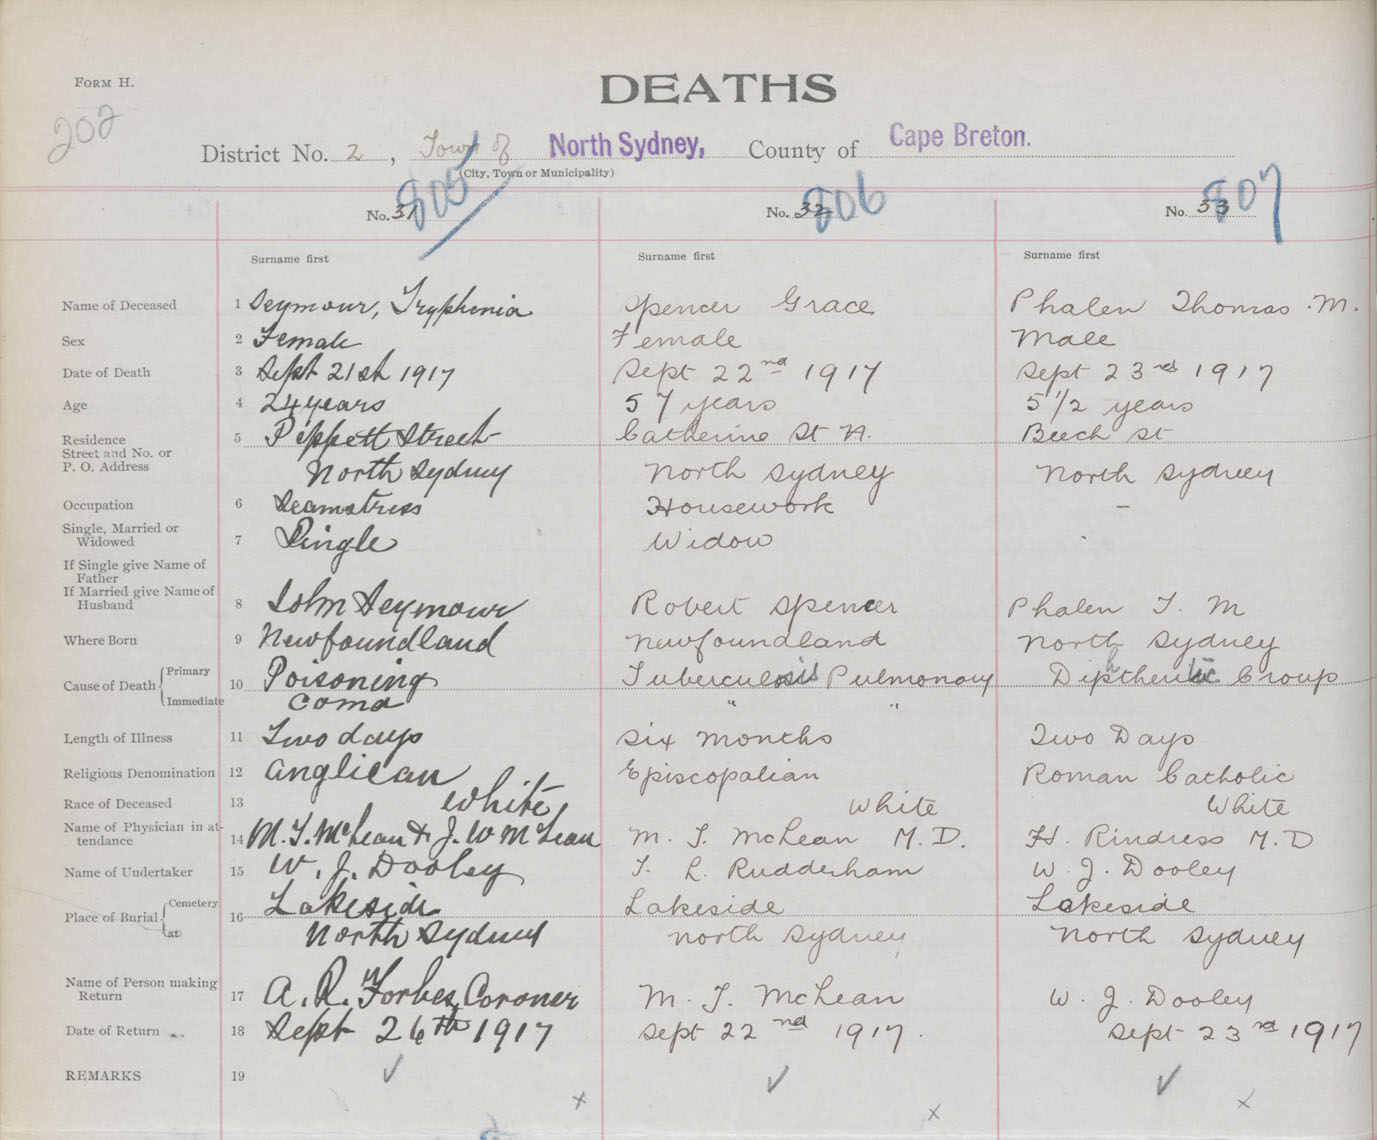 FORM H.
DEATHS
202
District No. 2, Town of North Sydney, County of Cape Breton.
(City, Town or Municipality)
No. 31 805 No. 32 806 No. 33 807
Surname first Surname first Surname first
Name of Deceased 1 Seymour, Tryphenia Spencer Grace Phalen Thomas .M.
Sex 2 Female Female Male
Date of Death 3 Sept 21st 1917 Sept 22nd 1917 Sept 23rd 1917
Age 4 24 years 57 years 5 1/2 years
Residence 5 Pippett Street Catherine St N. Beech St
Street and No. or
P. O. Address North Sydney North Sydney North Sydney
Occupation 6 Seamstress Housework –
Single, Married or
Widowed 7 Single Widow
If Single give Name of
Father
If Married give Name of
Husband 8 John Seymour Robert Spencer Phalen T. M
Where Born 9 Newfoundland Newfoundland North Sydney
Cause of Death { Primary 10 Poisoning Tuberculosis Pulmonary Diphtheritic Croup
Immediate Coma " "
Length of Illness 11 Two days Six Months Two Days
Religious Denomination 12 Anglican Episcopalian Roman Catholic
Race of Deceased 13 White White White
Name of Physician in at-
tendance 14 M. T. McLean & J. W McLean M. T. McLean M. D. H. Rindress M. D
Name of Undertaker 15 W. J. Dooley T. L. Rudderham W. J. Dooley
Place of Burial { Cemetery 16 Lakeside Lakeside Lakeside
at North Sydney North Sydney North Sydney
Name of Person making
Return 17 A. R. Forbes, Coroner M. T. McLean W. J. Dooley
Date of Return 18 Sept 26th 1917 Sept 22nd 1917. Sept 23rd 1917
REMARKS 19 ✓ ✓ ✓
x x x